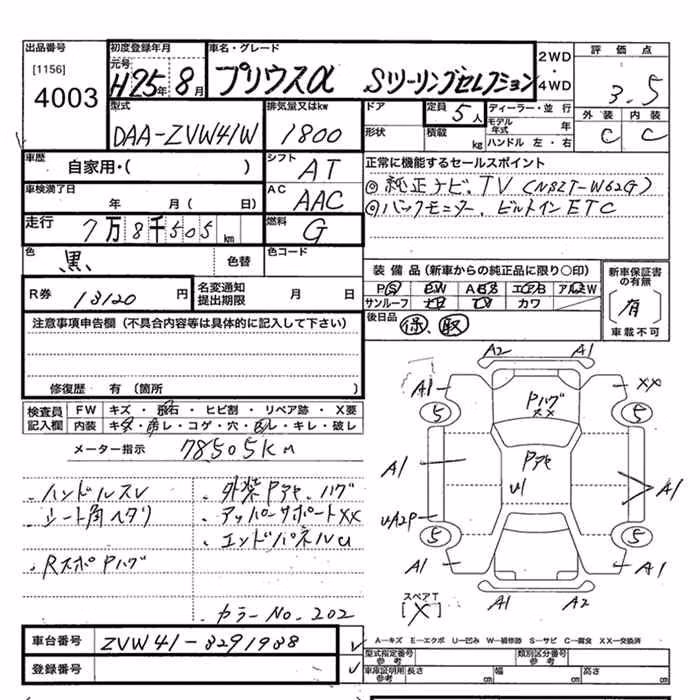 出品番号
[1156]
4003
初度登録年月
元号
H25年8月
車名・グレード
プリウスα Sツーリングセレクション
2WD
・
4WD
評価点
3.5
外装 内装
C C
型式
DAA-ZVW41W
排気量又はkw
1800
ドア
形状
定員
5人
積載
kg
ディーラー・並行
モデル年式 年
ハンドル 左・右
車歴
自家用・( )
シフト
AT
正常に機能するセールスポイント
◎純正ナビ、TV (NSZT-W62G)
◎バックモニター、ビルトインETC
車検満了日
年 月( 日)
AC
AAC
走行
7万8千505km
燃料
G
色
黒
色替
色コード
装備品(新車からの純正品に限り○印)
PS PW ABS エアB アルミW
サンルーフ ナビ TV カワ
後日品
保 取
新車保証書の有無
有
車載不可
R券
13120円
名変通知
提出期限
月 日
注意事項申告欄(不具合内容等は具体的に記入して下さい)
修復歴 有(箇所 )
検査員
記入欄
FW キズ・飛石・ヒビ割・リペア跡・X要
内装 キズ・スレ・コゲ・穴・ヨゴレ・キレ・破レ
メーター指示 78505Km
・ハンドルスレ
・シート角ヘタリ
・RスポPハゲ
・外装Pアセ、ハゲ
・アッパーサポートXX
・エンドパネルU
・カラーNo.202
A2 A1
A1 XX
Pハゲ
XX
5 5
A1 Pアセ
U1
A1
UA2P
5 5
A1 A1
A1 A2
スペアT
[X]
車台番号
ZVW41-3291938
登録番号
A−キズ E−エクボ U−凹み W−補修跡 S−サビ C−腐食 XX−交換済
型式指定番号
参考
類別区分番号
参考
車庫証明用
参考
長さ cm
幅 cm
高さ cm